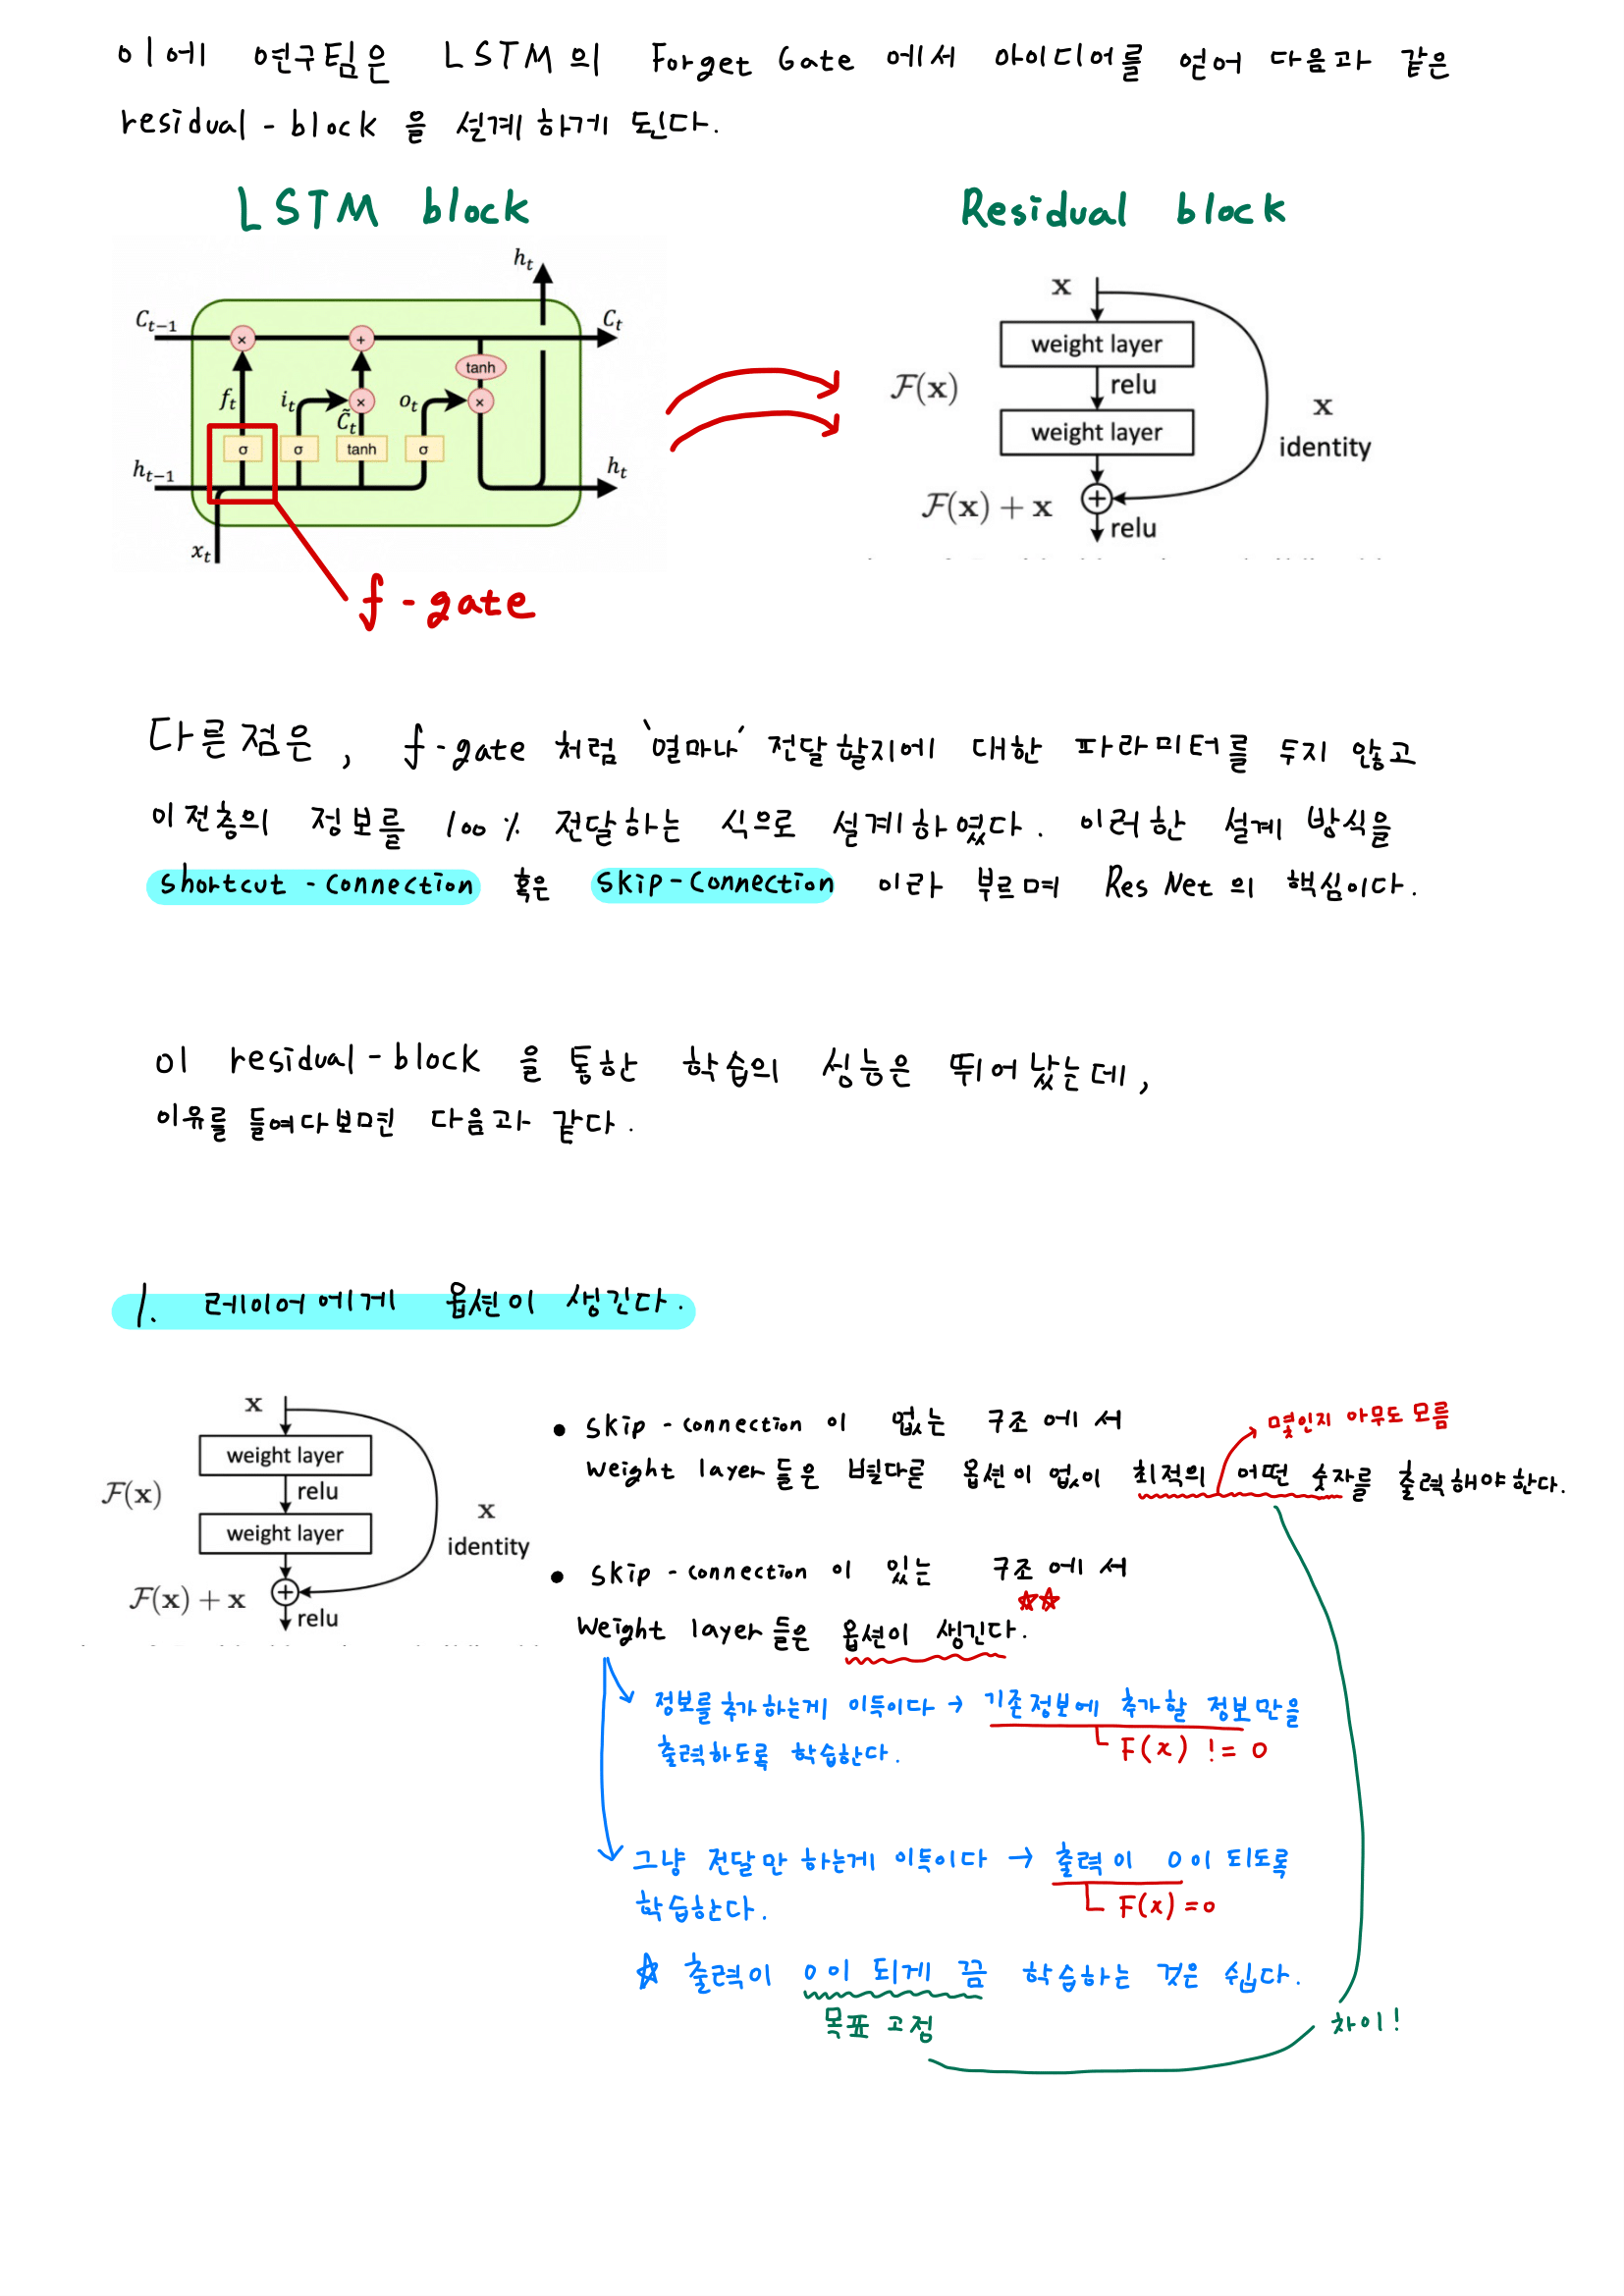 이에 연구팀은 LSTM의 Forget Gate 에서 아이디어를 얻어 다음과 같은
residual-block 을 설계하게 된다.
LSTM block
Residual block
h_t
C_{t-1}
C_t
×
+
tanh
f_t
i_t
×
o_t
×
C̃_t
σ
σ
tanh
σ
h_{t-1}
h_t
x_t
f-gate
x
weight layer
relu
F(x)
weight layer
x
identity
F(x) + x
+
relu
다른점은, f-gate 처럼 '얼마나' 전달할지에 대한 파라미터를 두지 않고
이전층의 정보를 100% 전달하는 식으로 설계하였다. 이러한 설계 방식을
shortcut-connection 혹은 skip-connection 이라 부르며 ResNet의 핵심이다.
이 residual-block 을 통한 학습의 성능은 뛰어났는데,
이유를 들여다보면 다음과 같다.
1. 레이어에게 옵션이 생긴다.
x
weight layer
relu
F(x)
weight layer
x
identity
F(x) + x
+
relu
• skip-connection 이 없는 구조에서
몇인지 아무도 모름
weight layer들은 별다른 옵션이 없이 최적의 어떤 숫자를 출력해야한다.
• skip-connection 이 있는 구조에서
weight layer들은 옵션이 생긴다.
정보를 추가하는게 이득이다 → 기존정보에 추가할 정보만을
출력하도록 학습한다.
F(x) != 0
그냥 전달만 하는게 이득이다 → 출력이 0이 되도록
학습한다.
F(x)=0
☆ 출력이 0이 되게 끔 학습하는 것은 쉽다.
목표 고정
차이!